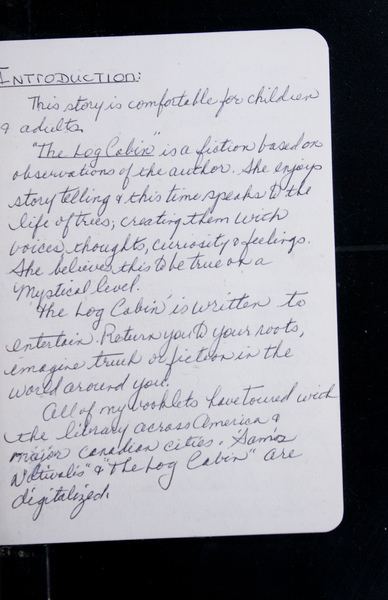 INTRODUCTION:
This story is comfortable for children
& adults.
"The Log Cabin" is a fiction based on
observations of the author. She enjoys
story telling & this time speaks to the
life of trees; creating them with
voices, thoughts, curiosity & feelings.
She believes this to be true on a
mystical level.
"The Log Cabin" is written to
entertain. Return you to your roots,
imagine truth or fiction in the
world around you.
All of my booklets have toured with
the library across America &
major Canadian cities.
& "The Log Cabin" are
digitalized.